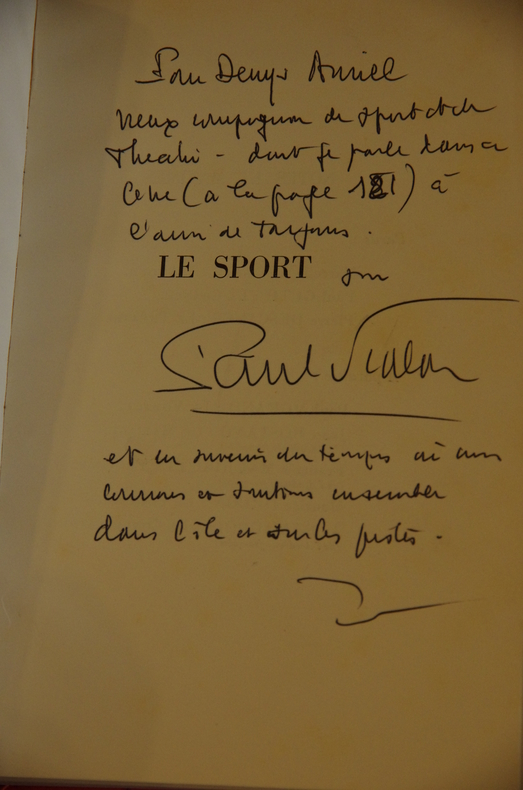 Pour Denys Amiel
vieux compagnon de sport et de
Theatre - dont je parle dans ce
livre (a la page 181) à
l'ami de toujours.
LE SPORT son
Paul Vialar
et en souvenir du temps où nous
courions et sautions ensemble
dans l'île et sur les pistes.